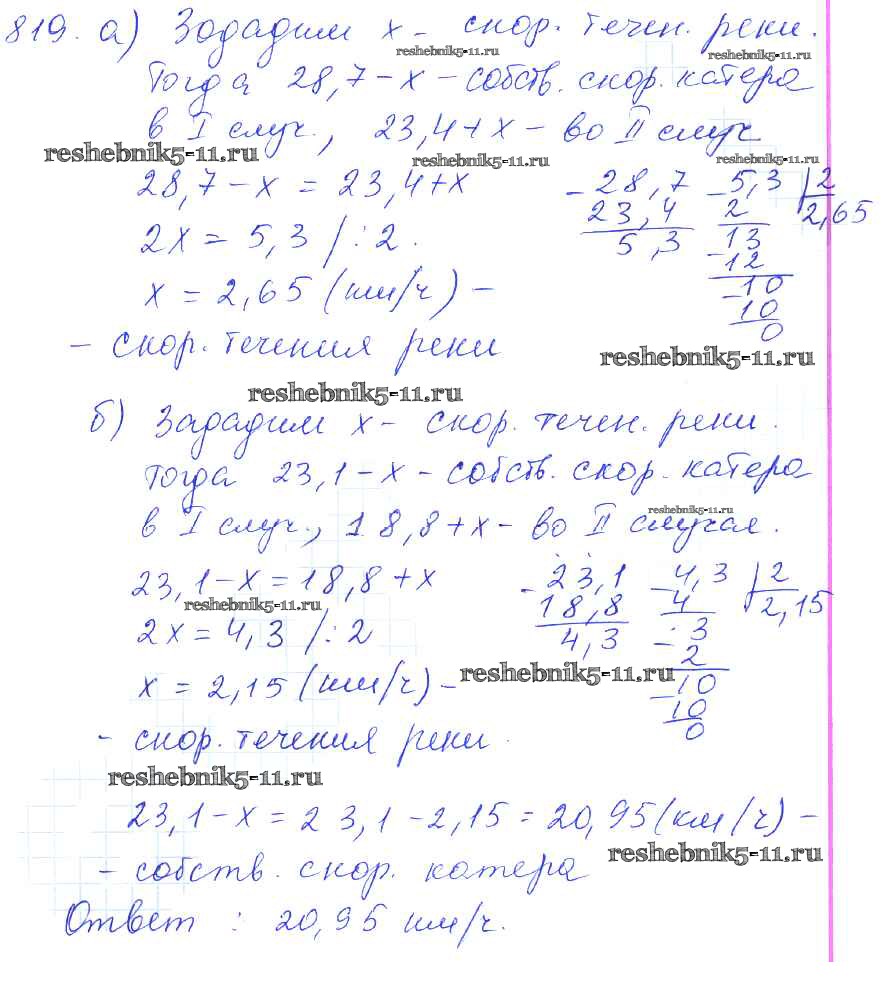 819. а) Зададим x - скор. течен. реки.
reshebnik5-11.ru reshebnik5-11.ru
Тогда 28,7 - x - собств. скор. катера
в I случ., 23,4 + x - во II случ
reshebnik5-11.ru reshebnik5-11.ru reshebnik5-11.ru
28,7 - x = 23,4 + x - 28,7 - 5,3 | 2
23,4 2 2,65
2x = 5,3 / : 2. 5,3 13
- 12
x = 2,65 (км/ч) - - 10
10
0
- скор. течения реки
reshebnik5-11.ru
reshebnik5-11.ru
б) Зададим x - скор. течен. реки.
Тогда 23,1 - x - собств. скор. катера
reshebnik5-11.ru
в I случ., 18,8 + x - во II случая.
23,1 - x = 18,8 + x - 23,1 - 4,3 | 2
reshebnik5-11.ru 18,8 4 2,15
2x = 4,3 / : 2 4,3 - 3
2
reshebnik5-11.ru
x = 2,15 (км/ч) - - 10
10
0
- скор. течения реки.
reshebnik5-11.ru
23,1 - x = 23,1 - 2,15 = 20,95 (км/ч) -
reshebnik5-11.ru
- собств. скор. катера
Ответ : 20,95 км/ч.